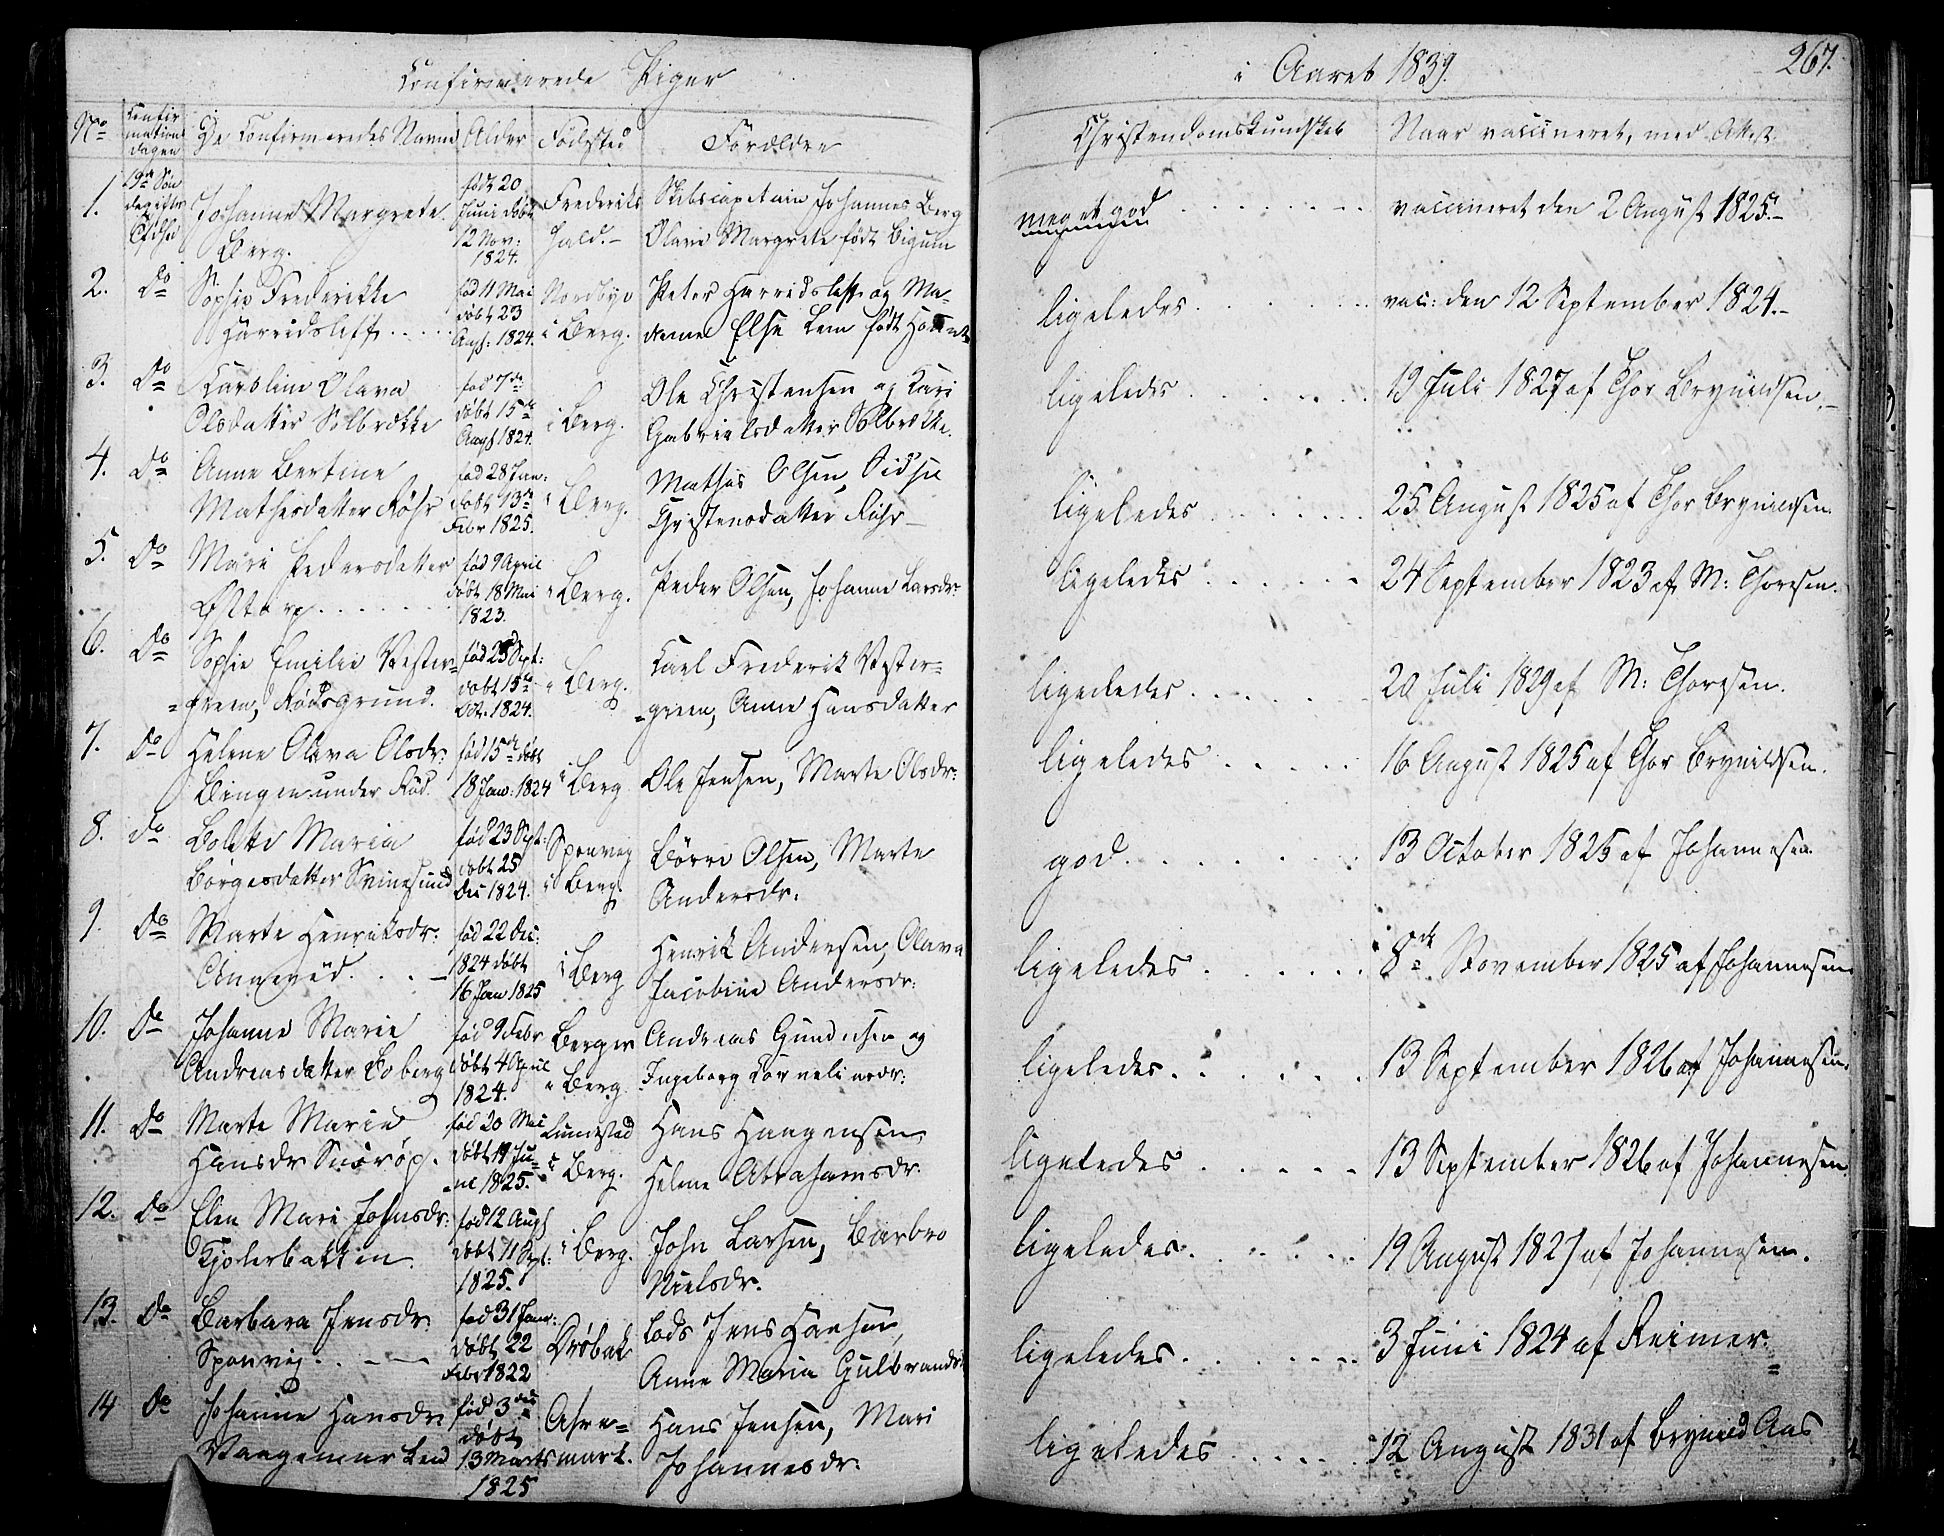 Confirmerede Piger
i Aaret 1839.
267.
No
Confir
mations
dagen
De Confirmeredes Navne
Alder
Fødested
Forældre
Christendomskundskab
Naar vaccineret, med Attest
1.
19de Søn
dag efter
Johanne Margrete
Berg.
født 20
Juni døbt
12 Nov:
1824.
Frederiks
hald.-
Skibscapetain Johannes Berg
Olave Margrete født Bigum
meget god
vaccineret den 2 August 1825.-
2.
Do
Sophie Frederikke
Harridsleff
fød 11 Mai
døbt 23
Augs: 1824.
Nordbye
i Berg.
Peter Harridsleff og Ma-
dame Else Lem født
ligeledes
vac: den 12 September 1824.-
3.
Do
Karoline Olava
Olsdatter Solbrække
fød 7de
døbt 15de
Augs 1824.
i Berg.
Ole Christensen og Kari
Gabrielsdatter Solbrække.
ligeledes
19 Juli 1827 af Thor Brynildsen.-
4.
Do
Anne Bertine
Mathisdatter Röhr
fød 28 Jan:
døbt 13de
Febr 1825.
i Berg.
Mathis Olsen, Sidse
Christensdatter Röhr
ligeledes
25 August 1825 af Thor Brynildsen.
5.
Do
Mari Pedersdatter
Østorp
fød 9 April
døbt 18 Mai
1823.
i Berg.
Peder Olsen, Johanne Larsdr:
ligeledes
24 September 1823 af M: Thoresen.
6.
Do
Sophie Emilie Vester=
=green, Rødsgrund.
fød 25 Sept:
døbt 15de
Oct: 1824.
i Berg.
Karl Frederik Vester=
=green, Anne Hansdatter
ligeledes
20 Juli 1829 af M: Thoresen.
7.
Do
Helene Olava Olsdr:
Bingen under Rød.
fød 15de døbt
18 Jan: 1824
i Berg
Ole Jensen, Marte Olsdr:
ligeledes
16 August 1825 af Thor Brynildsen.
8.
Do
Bolette Maria
Børgesdatter Svinesund
fød 23 Sept:
døbt 25
Dec 1824.
Sponvig
i Berg.
Børre Olsen, Marte
Andersdr:
god.
13 October 1825 af Johannesen
9.
Do
Marte Henriksdr:
fød 22 Dec:
1824 døbt
16 Jan 1825
i Berg
Henrik Andersen, Olava
Jacobine Andersdr:
ligeledes
8de November 1825 af Johannesen
10.
Do
Johanne Marie
Andreasdatter Loberg
fød 9 Febr
døbt 4 April
1824.
Berger
i Berg.
Andreas Gundersen og
Ingeborg Korneliusdr:
ligeledes
13 September 1826 af Johannesen.
11.
Do
Marte Marie
Hansdr
fød 20 Mai
døbt 19 Ju-
=ni 1825.
Lundestad
i Berg.
Hans Haagensen,
Helene Abrahamsdr.
ligeledes
13 September 1826 af Johannesen
12.
Do
Elen Mari Johnsdr:
Kjølerbatten
fød 12 Augs
døbt 11 Sept:
1825.
i Berg.
John Larsen, Barbro
Nielsdr.
ligeledes.
19 August 1827 af Johannesen.
13.
Do
Barbara Jensdr:
Sponvig.
fød 31 Janr:
døbt 22
Febr 1822
Drøbak
Lods Jens Hansen,
Anne Maria Gulbrandsd
ligeledes.
3 Juni 1824 af Reimer.
14
Do
Johanne Hansdr
Vaagemarken
fød 3die
døbt
13 Marts
1825
Asre=
mark.
Hans Jensen, Mari
Johannesdr.
ligeledes
12 August 1831 af Brynild Aas